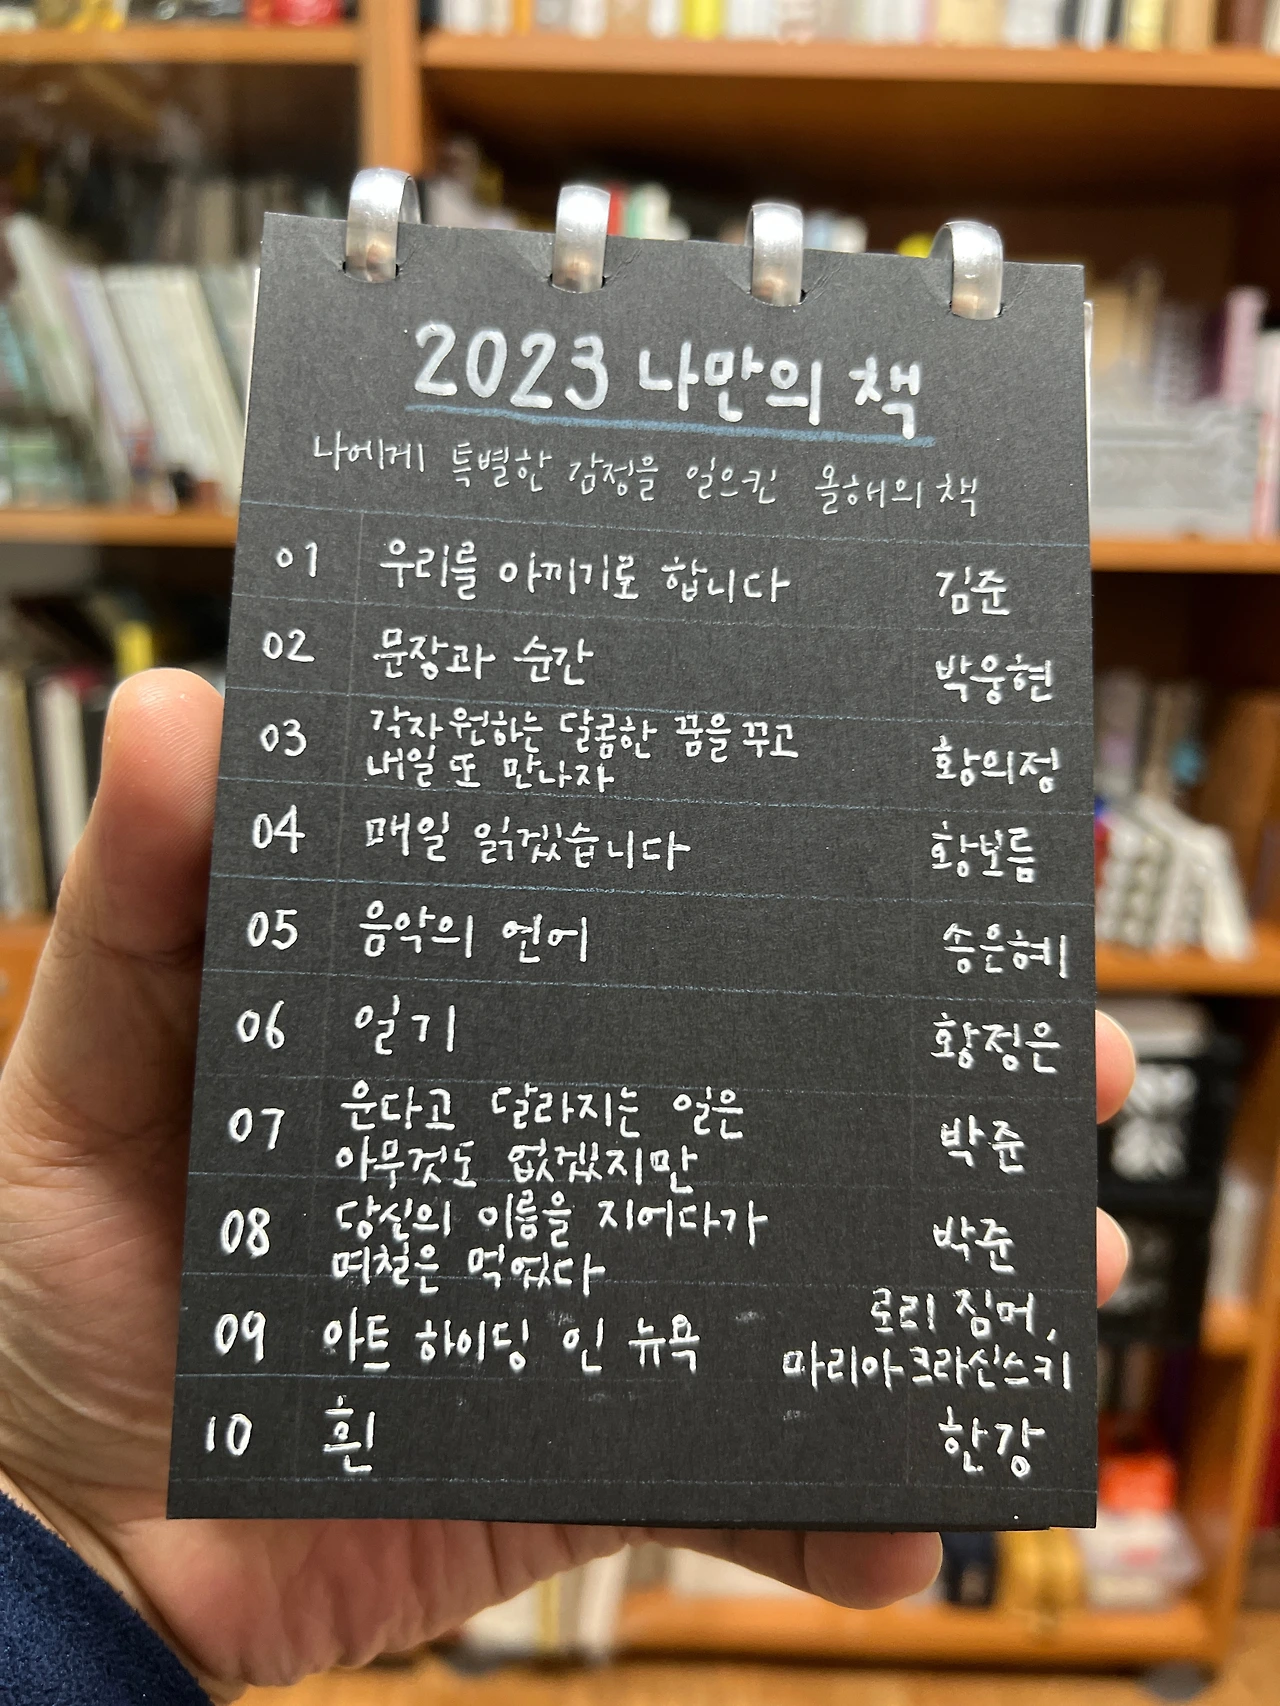 2023 나만의 책
나에게 특별한 감정을 일으킨 올해의 책
01 우리를 아끼기로 합니다 김준
02 문장과 순간 박웅현
03 각자 원하는 달콤한 꿈을 꾸고
내일 또 만나자 황의정
04 매일 읽겠습니다 황보름
05 음악의 언어 송은혜
06 일기 황정은
07 운다고 달라지는 일은
아무것도 없겠지만 박준
08 당신의 이름을 지어다가
며칠은 먹었다 박준
09 아트 하이딩 인 뉴욕 로리 짐머,
마리아 크라신스키
10 흰 한강